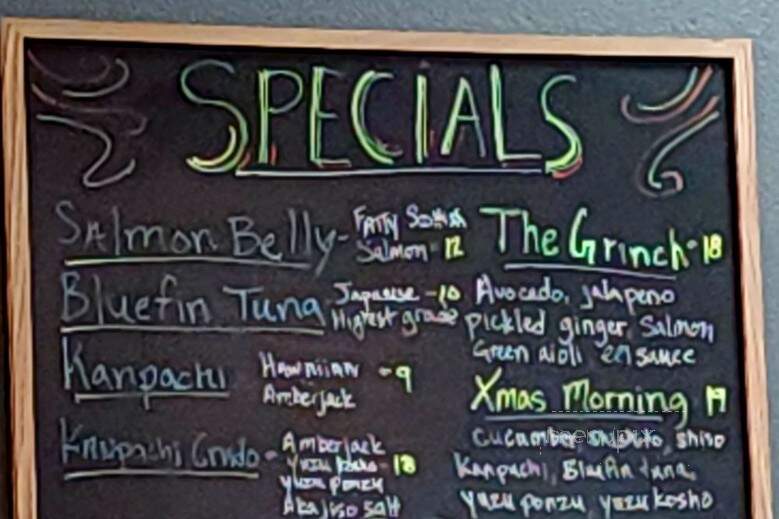 SPECIALS
Salmon Belly - Fatty Scottish
Salmon - 12
Bluefin Tuna Japanese - 10
Highest grade
Kanpachi Hawaiian - 9
Amberjack
Kanpachi Crudo - Amberjack
yuzu kosho - 18
yuzu ponzu
Akajiso salt
The Grinch - 18
Avocado, jalapeno
pickled ginger, Salmon
Green aioli eel sauce
Xmas Morning 19
Cucumber shiso
Kanpachi, Bluefin tuna,
yuzu ponzu, yuzu kosho